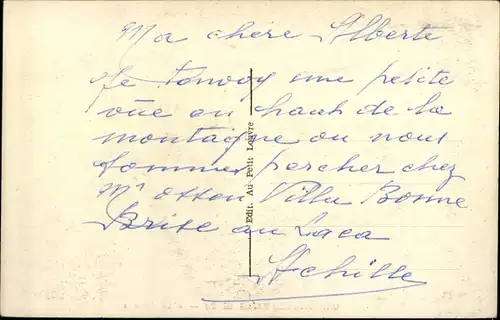 Ma chère Alberte
Je t'envoy une petite
vüe au haut de la
montagne ou nous
sommes percher chez
Mr Otten Villa Bonne
Brise au Laca
Achille
Edit. Au Petit Louvre